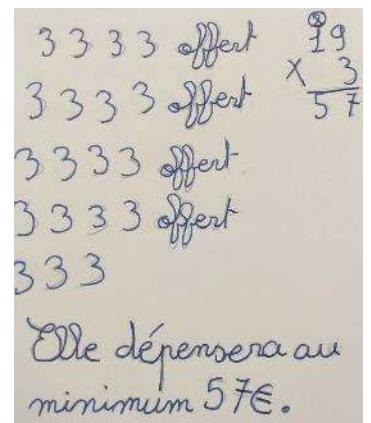 3 3 3 3 offert
3 3 3 3 offert
3 3 3 3 offert
3 3 3 3 offert
3 3 3
2
19
X 3
57
Elle dépensera au
minimum 57€.